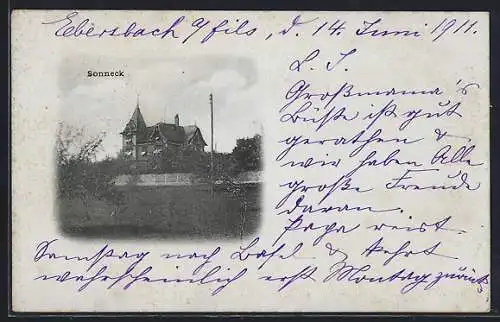 Ebersbach a/fils, d. 14. Juni 1911.
Sonneck
L. J.
Großmama's
Büste ist gut
gerathen &
wir haben Alle
große Freude
daran.
Papa reist
Samstag nach Basel & kehrt
wahrscheinlich erst Montag zurück.